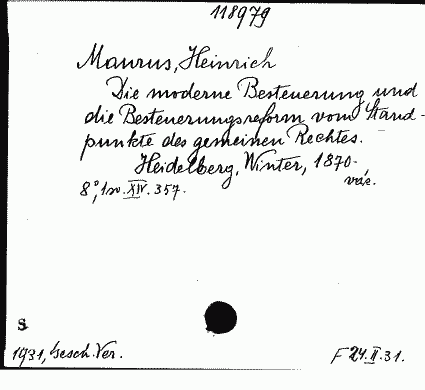 118979
Maurus, Heinrich
Die moderne Besteuerung und
die Besteuerungsreform vom Stand-
punkte des gemeinen Rechtes.
Heidelberg, Winter, 1870.
8°, XIV. 357.
S
1931, Gesch. Ver.
F 24.II.31.